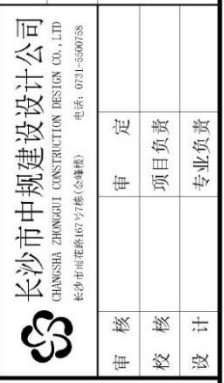 长沙市中规建设设计公司
CHANGSHA ZHONGGUI CONSTRUCTION DESIGN CO.,LTD
长沙市雨花路167号7栋(金峰楼) 电话: 0731-5500758
审 核 审 定
校 核 项目负责
设 计 专业负责